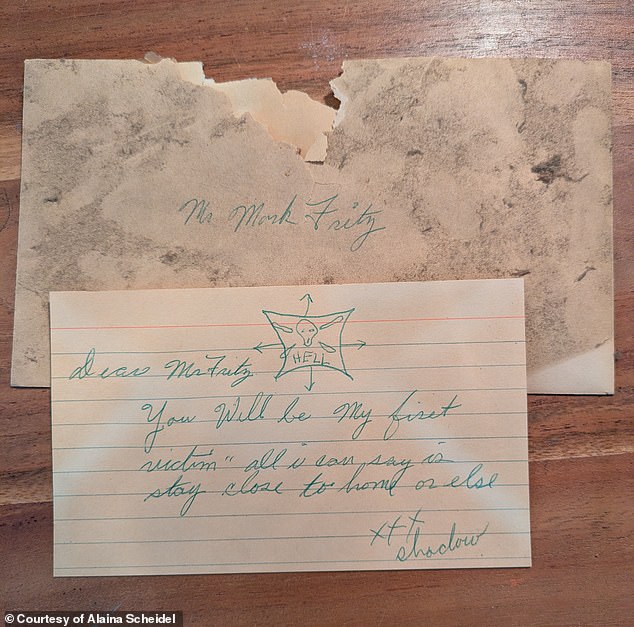 Mr Mark Fritz
HELL
Dear Mr Fritz
You Will be My first
victim" all i can say is
stay close to home or else
xtt
shadow
©Courtesy of Alaina Scheidel